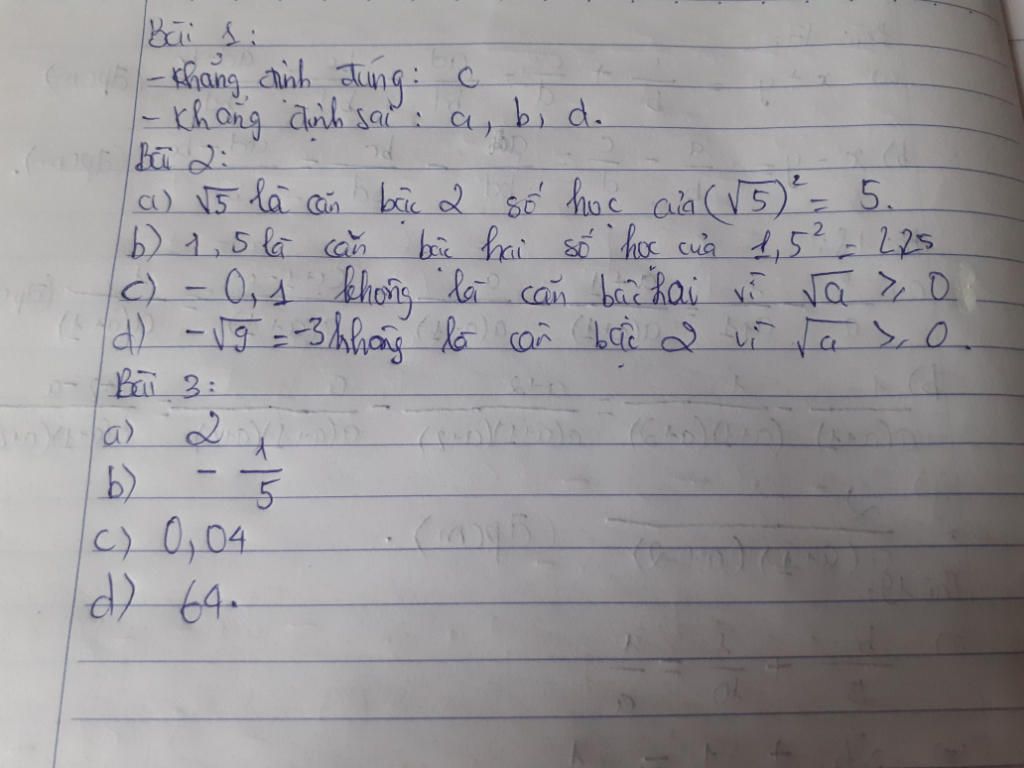 Bài 1:
- Khẳng định đúng: c
- Khẳng định sai: a, b, d.
Bài 2:
a) √5 là căn bậc 2 số học của (√5)² = 5.
b) 1,5 là căn bậc hai số học của 1,5² = 2,25
c) - 0,1 không là căn bậc hai vì √a ≥ 0
d) -√9 = -3 không là căn bậc 2 vì √a ≥ 0.
Bài 3:
a) 2
b) - 1/5
c) 0,04
d) 64.